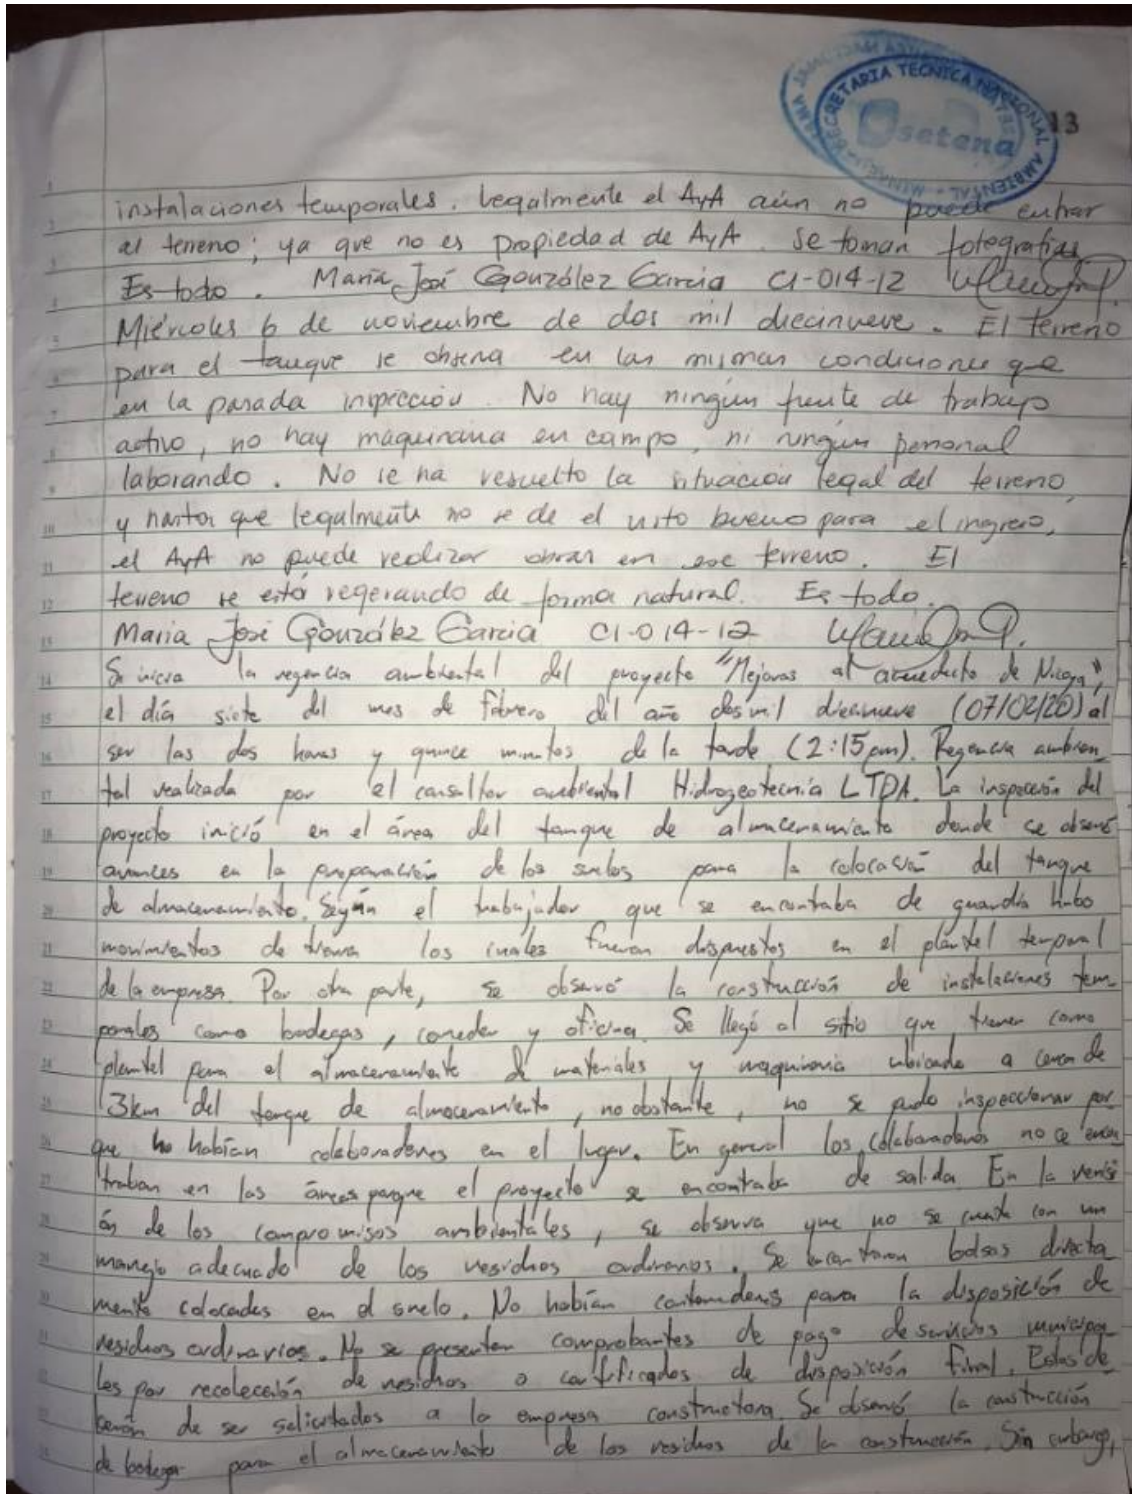 SECRETARIA TECNICA NACIONAL AMBIENTAL
setena
13
instalaciones temporales. Legalmente el AyA aún no puede entrar
al terreno; ya que no es propiedad de AyA. Se toman fotografías
Es todo. María José González García CI-014-12
Miércoles 6 de noviembre de dos mil diecinueve. El terreno
para el tanque se observa en las mismas condiciones que
en la pasada inspección. No hay ningún frente de trabajo
activo, no hay maquinaria en campo, ni ningún personal
laborando. No se ha resuelto la situación legal del terreno,
y hasta que legalmente no se de el visto bueno para el ingreso,
el AyA no puede realizar obras en ese terreno. El
terreno se está regerando de forma natural. Es todo.
María José González García CI-014-12
Se inicia la regencia ambiental del proyecto "Mejoras al acueducto de Nicoya",
el día siete del mes de febrero del año dos mil diecinueve (07/02/20) al
ser las dos horas y quince minutos de la tarde (2:15 pm). Regencia ambien
tal realizada por el consultor ambiental Hidrogeotecnia LTDA. La inspección del
proyecto inició en el área del tanque de almacenamiento donde se observó
avances en la preparación de los suelos para la colocación del tanque
de almacenamiento. Según el trabajador que se encontraba de guardia hubo
movimientos de tierra los cuales fueron dispuestos en el plantel temporal
de la empresa. Por otra parte, se observó la construcción de instalaciones tem
porales como bodegas, comedor y oficina. Se llegó al sitio que tienen como
plantel para el almacenamiento de materiales y maquinaria ubicado a cerca de
3km del tanque de almacenamiento, no obstante, no se pudo inspeccionar por
que no habían colaboradores en el lugar. En general los colaboradores no se encon
traban en las áreas porque el proyecto se encontraba de salida. En la
ón de los compromisos ambientales, se observa que no se cuenta con un
manejo adecuado de los residuos ordinarios. Se encontraron bolsas directa
mente colocadas en el suelo. No habían contenedores para la disposición de
residuos ordinarios. No se presentan comprobantes de pago de servicios municipa
les por recolección de residuos o certificados de disposición final. Estos de
berán de ser solicitados a la empresa constructora. Se observó la construcción
de bodega para el almacenamiento de los residuos de la construcción. Sin embargo,